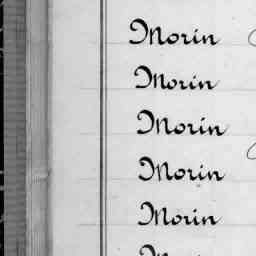 Morin
Morin
Morin
Morin
Morin